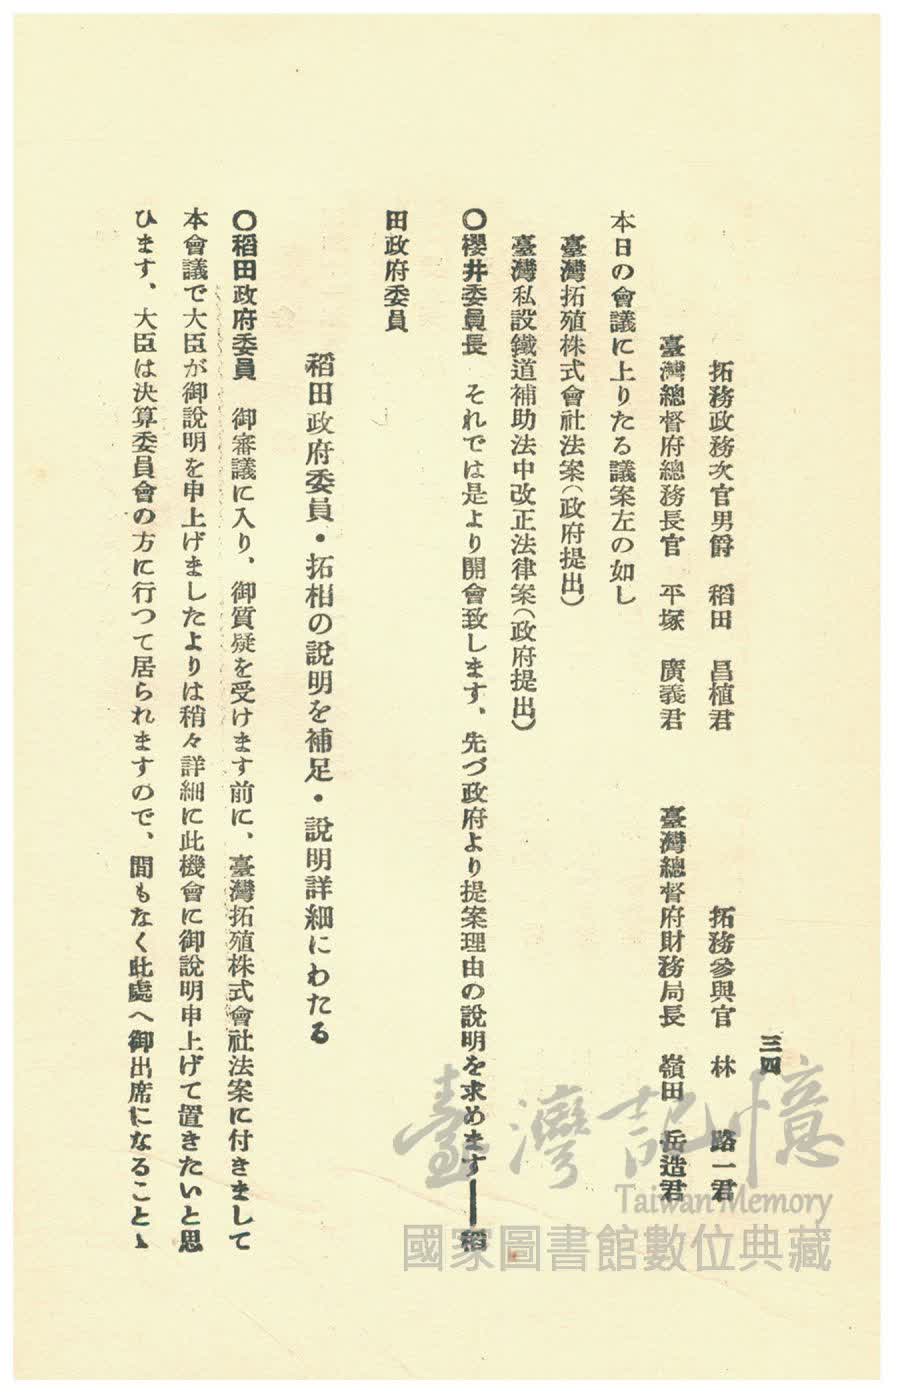 三四
拓務政務次官男爵　稻田　昌植君　拓務參與官　林　路一君
臺灣總督府總務長官　平塚　廣義君　臺灣總督府財務局長　嶺田　岳造君
本日の會議に上りたる議案左の如し
臺灣拓殖株式會社法案（政府提出）
臺灣私設鐵道補助法中改正法律案（政府提出）
〇櫻井委員長　それでは是より開會致します、先づ政府より提案理由の說明を求めます――稻
田政府委員
稻田政府委員・拓相の說明を補足・說明詳細にわたる
〇稻田政府委員　御審議に入り、御質疑を受けます前に、臺灣拓殖株式會社法案に付きまして
本會議で大臣が御說明を申上げましたよりは稍々詳細に此機會に御說明申上げて置きたいと思
ひます、大臣は決算委員會の方に行つて居られますので、間もなく此處へ御出席になることゝ
臺灣記憶
Taiwan Memory
國家圖書館數位典藏